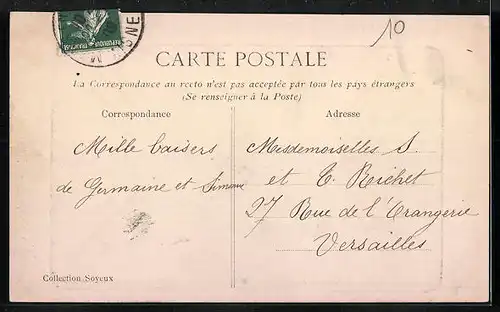 10
REPUBLIQUE FRANCAISE
CARTE POSTALE
La Correspondance au recto n'est pas acceptée par tous les pays étrangers
(Se renseigner à la Poste)
Correspondance
Mille baisers
de Germaine et Simone
Adresse
Mesdemoiselles S.
et C. Richet
27 Rue de l'Orangerie
Versailles
Collection Soyeux